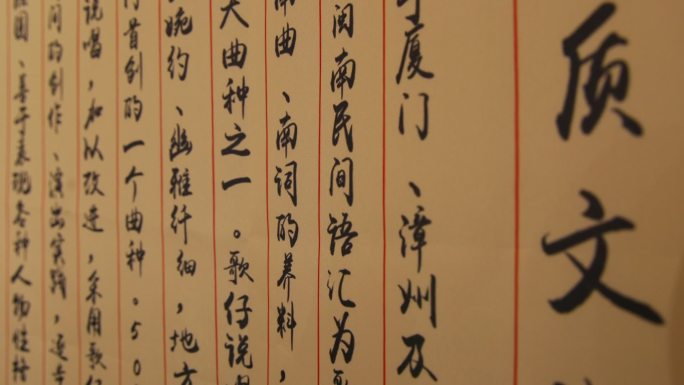 质文
厦门、漳州及
闽南民间语汇为
南曲、南词的养料，
大曲种之一。歌仔说唱
婉约、幽雅纤细，地方
首创的一个曲种。50
说唱，加以改进，采用歌仔
间的创作、演出实践，逐步
善于表现各种人物性格